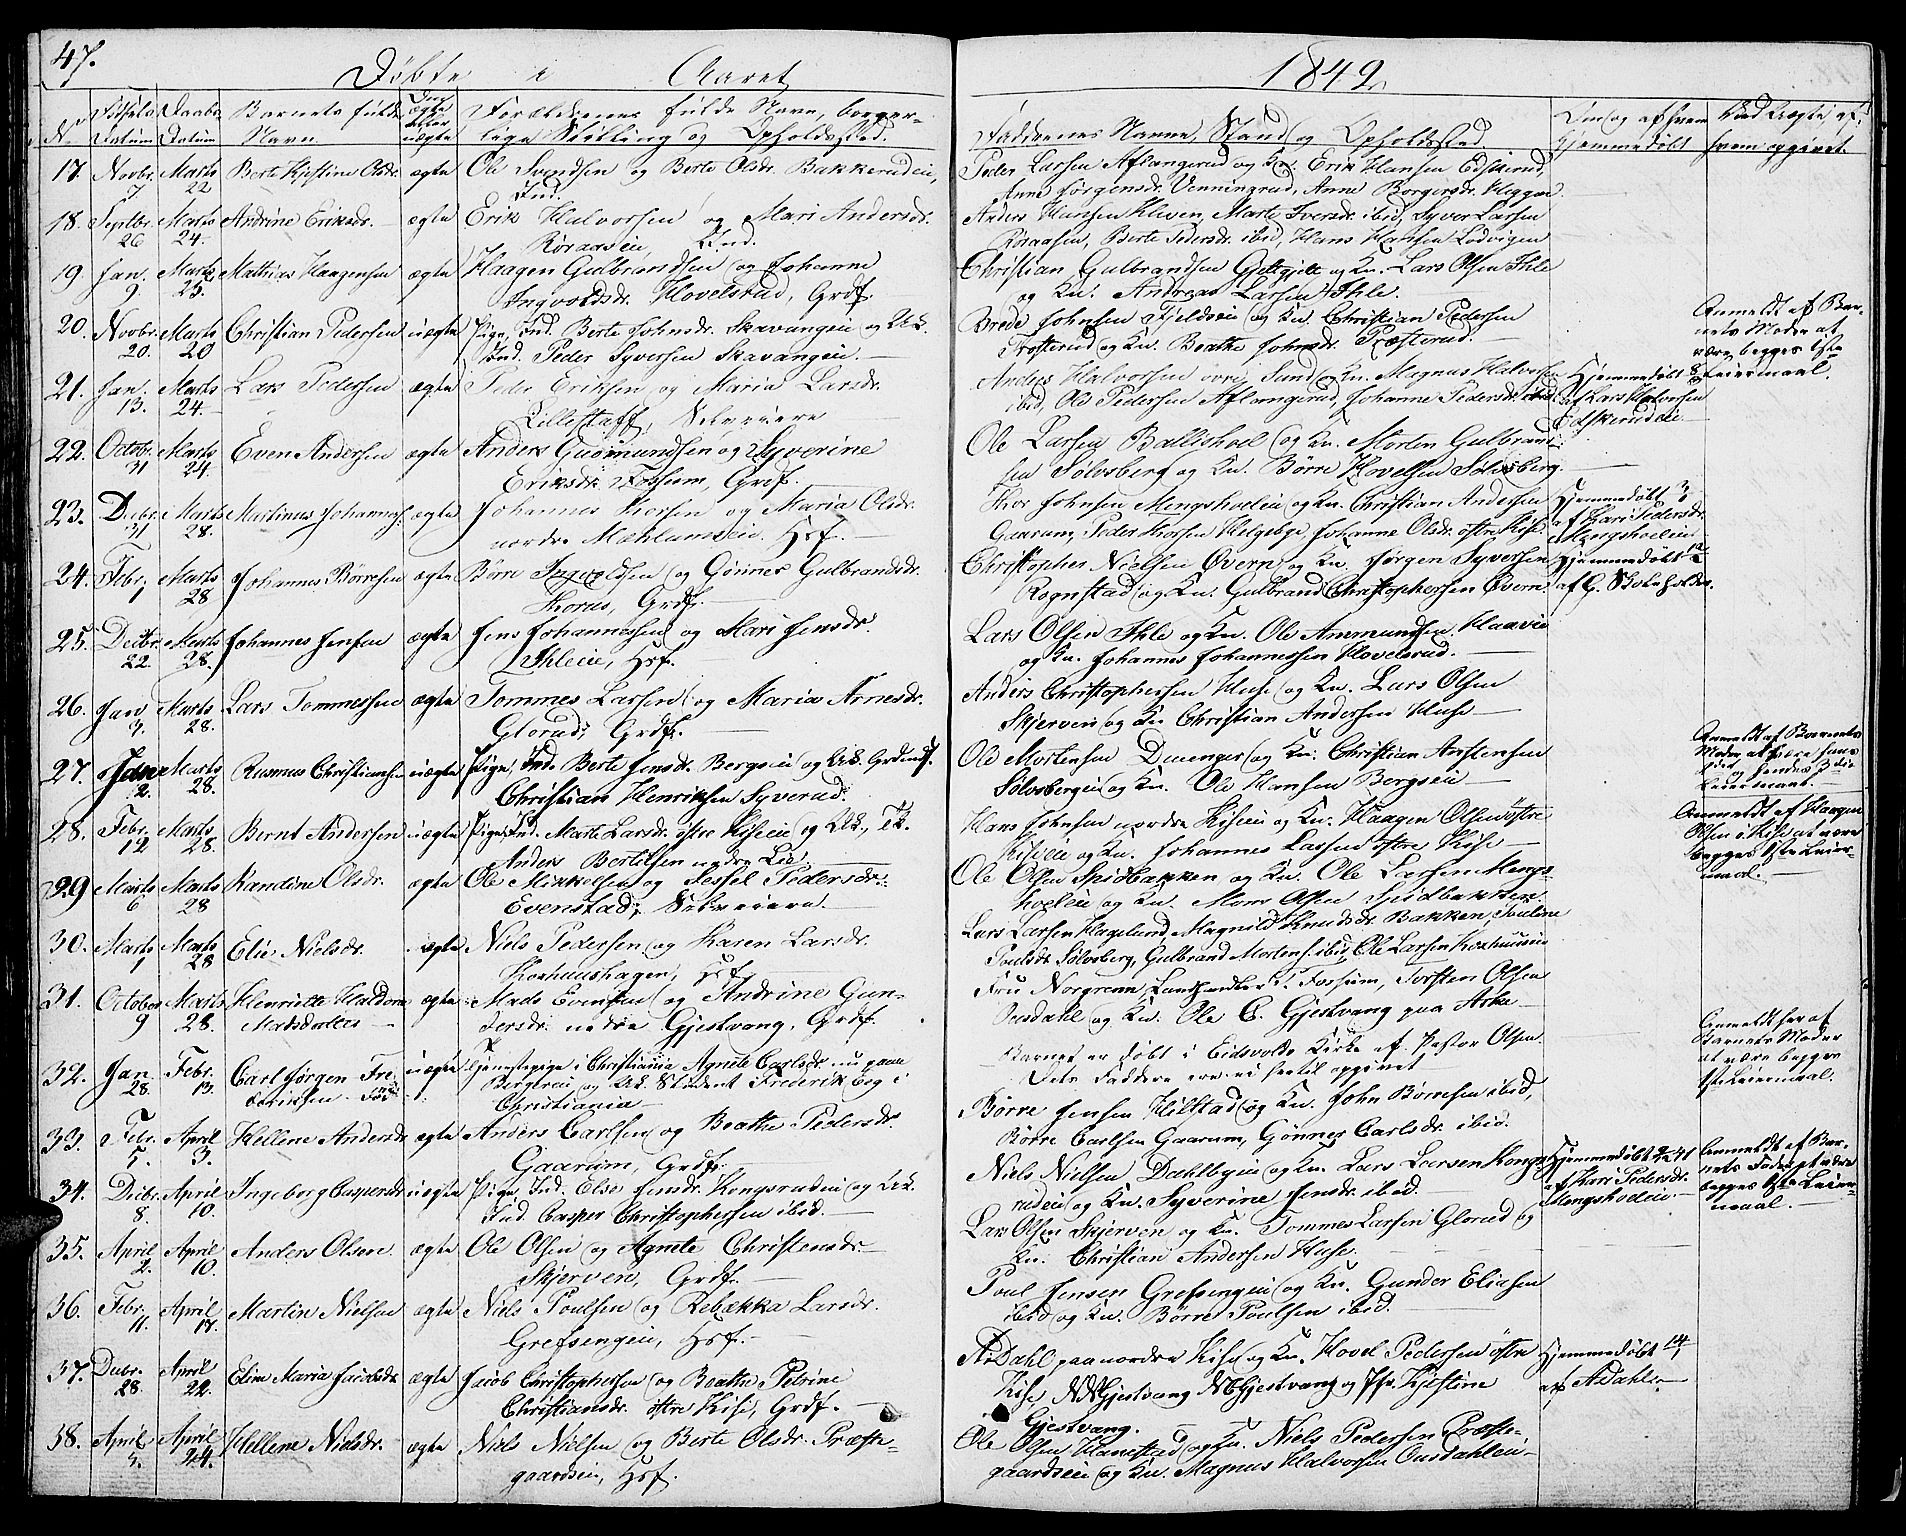 47.
Døbte i Aaret
1842.
No
Fødsels Datum
Daabs Datum
Barnets fulde Navn
Om ægte eller uægte
Forældrenes fulde Navn, borgerlige Stilling og Opholdssted.
Faddernes Navne, Stand og Opholdssted.
Om og af hvem hjemmedøbt
hvem opgivet.
17. Novbr. 7 Marts 22 Berte Kjestine Olsdr. ægte Ole Svendsen og Berte Olsdr. Bakkerudeie,
Ind.
Peder Larsen Aflangerud og Kn. Erik Hansen Edskerud,
Anne Jørgensdr. Venningrud, Anne Borgersdr. Heggen
18. Septbr. 26 Marts 24. Andrine Eriksdr. ægte Erik Halvorsen og Mari Andersdr.
Røraaseie, Ind.
Anders Hansen Kleven, Marte Iversdr. ibid, Syver Larsen
Røraasen, Berte Pedersdr. ibid, Hans Hansen Lodvigen
19. Jan. 9. Marts 25. Mathias Haagensen ægte Haagen Gulbrandsen og Johanne
Ingvoldsdr. Hovelsrud, Grdf.
Christian Gulbrandsen og Kn. Lars Olsen Ihle
og Kn. Andreas Larsen Ihle.
20. Novbr. 20. Marts 20 Christian Pedersen uægte Pige, Ind. Berte Johnsdr. Skavangeie og Uk.
Ind. Peder Syversen Skavangeie.
Brede Johnsen Fjeldseie og Kn. Christian Pedersen
Præsterud og Kn. Beathe Johnsdr. Præsterud.
Anmeldt af Barnets Moder at
være begges 1ste
Leiermaal.
21. Jan. 13. Marts 24. Lars Pedersen ægte Peder Eriksen og Maria Larsdr.
Lillestaff, Selveiere
Anders Halvorsen øvre Sund og Kn. Magnus Halvorsen
ibid, Ole Pedersen Aflangerud, Johanne Pedersdr. ibid
Hjemmedøbt
af Lars Halvorsen
Edskerudeie.
22. Octobr. 31 Marts 24. Even Andersen ægte Anders Gudmundsen og Syverine
Eriksdr. Fossum, Grdf.
Ole Larsen Ballishoel og Kn. Morten Gulbrandsen
Sølvsberg og Kn. Børre Hovelsen Sølvsberg.
23. Decbr. 31 Marts 28. Martinus Johannes. ægte Johannes Thorsen og Maria Olsdr.
nordre Mæhlumseie. Hsf.
Thor Johnsen Mengshoeleie og Kn. Christian Andersen
Gaarum, Peder Thorsen Helgebye, Johanne Olsdr. østre Kise
Hjemmedøbt 3/1
af Kari Pedersdr.
Mengshoeleie
24. Febr. 1 Marts 28 Johannes Børresen ægte Børre Ingvoldsen og Gønner Gulbrandsdr.
Korus, Grdf.
Christopher Nielsen Øvern og Kn. Jørgen Syversen
Rognstad og Kn. Gulbrand Christophersen Øvern.
Hjemmedøbt 12/2
af G. Skoleholder.
25. Decbr. 22. Marts 28. Johannes Jensen ægte Jens Johannessen og Mari Jensdr.
Ihleeie, Hsf.
Lars Olsen Ihle og Kn. Ole Ammundsen Haaveie
og Kn. Johannes Johannessen Hovelsrud.
26. Jan. 3. Marts 28. Lars Tommessen ægte Tommes Larsen og Maria Arnesdr.
Glorud, Grdf.
Anders Christophersen Huse og Kn. Lars Olsen
Skjerven og Kn. Christian Andersen Huse
27. Jan. 2. Marts 28. Rasmus Christiansen uægte Pige, Ind. Berte Jensdr. Bergseie og Uk. Grdmd.
Christian Henriksen Syverud.
Ole Mortensen Duenger og Kn. Christian Arstensen
Sølvsbergeie og Kn. Ole Hansen Bergseie
Anmeldt af Barnets
Moder at være hans
og hendes 3die
Leiermaal.
28. Febr. 12 Marts 28. Bernt Andersen uægte Pige, Ind. Marte Larsdr. østre Kiseeie og Uk. Tk.
Anders Bertilsen nedre Lie.
Hans Johnsen nordre Kiseeie og Kn. Haagen Olsen østre
Kiseeie og Kn. Johannes Larsen østre Kise
Anmeldt af Haagen
Olsen i Kise at være
begges 1ste Leiermaal.
29 Marts 6 Marts 28 Kandine Olsdr. ægte Ole Mikkelsen og Sessel Pedersdr.
Evenstad, Selveiere.
Ole Olsen Spidbakken og Kn. Ole Larsen Mengshoeleie og Kn. Mons Olsen Spidbakken.
30. Marts 1 Marts 28 Elie Nielsdr. ægte Niels Pedersen og Karen Larsdr.
Korshaushagen, Hsf.
Lars Larsen Hagelund, Magnild Knudsdr. Bakken, Pauline
Poulsdr. Sølvsberg, Gulbrand Mortens. ibid, Ole Larsen Korshuuseie
31. October 9 Marts 28. Henriette Haldora
Madsdatter ægte Mads Evensen og Andrine Gundersdr. nedre Gjestvang, Grdf.
Fru Norgrenn, Landhandler T. Fossum, Torsten Olsen
Onsdahl og Kn. Ole C. Gjestvang paa Aske
32. Jan. 28. Febr. 13. Carl Jørgen Frederiksen uægte Tjenestepige i Christiania Agnete Carlsdr. nu paa
Bergseie og Uk. Student Frederik Eeg i
Christiania
Barnet er døbt i Eidsvolds Kirke af Pastor Olsen
Dets Faddere ere ei hertil opgivet
Anmeldt her af
Barnets Moder
at være begges
1ste Leiermaal.
33. Febr. 5. April 3. Hellene Andersdr. ægte Anders Carlsen og Beathe Pedersdr.
Gaarum, Grdf.
Børre Jensen Hilstad og Kn. John Børresen ibid,
Børre Carlsen Gaarum, Gønner Carlsdr. ibid.
34. Decbr. 8. April 10. Ingeborg Caspersdr. uægte Pige, Ind. Else Jensdr. Kongsrudeie og Uk.
Ind. Casper Christophersen ibid.
Niels Nielsen Dahlbyeie og Kn. Lars Larsen Kongsrudeie og Kn. Syverine Jensdr. ibid.
Hjemmedøbt
af Kari Pedersdr.
Mengshoeleie.
Anmeldt af Barnets Fader at være
begges 1ste Leiermaal.
35. April 2. April 10. Anders Olsen ægte Ole Olsen og Agnete Christensdr.
Skjerven, Grdf.
Lars Olsen Skjerven og Kn. Tommes Larsen Glorud og
Kn. Christian Andersen Huse.
36. Febr. 11. April 17. Martin Nielsen ægte Niels Poulsen og Rebekka Larsdr.
Grefsengeie, Hsf.
Poul Jensen Grefsengeie og Kn. Gunder Eliasen
ibid og Kn. Børre Poulsen ibid.
37. Decbr. 28. April 22. Eline Maria Jacobsdr. ægte Jacob Christophersen og Beathe Petrine
Christiansdr. østre Kise, Grdf.
A. Dahl paa nordre Kise og Kn. Hovel Pedersen østre
Kise, N N Gjestvang N E Gjestvang og Kjestine
Gjestvang.
Hjemmedøbt 14/1
af A Dahl.
38. April 3. April 24. Hellene Nielsdr. ægte Niels Nielsen og Berte Olsdr. Præstegaardseie, Hsf.
Ole Olsen Hanestad og Kn. Niels Pedersen Præstegaardseie og Kn. Magnus Halvorsen Onsdahleie